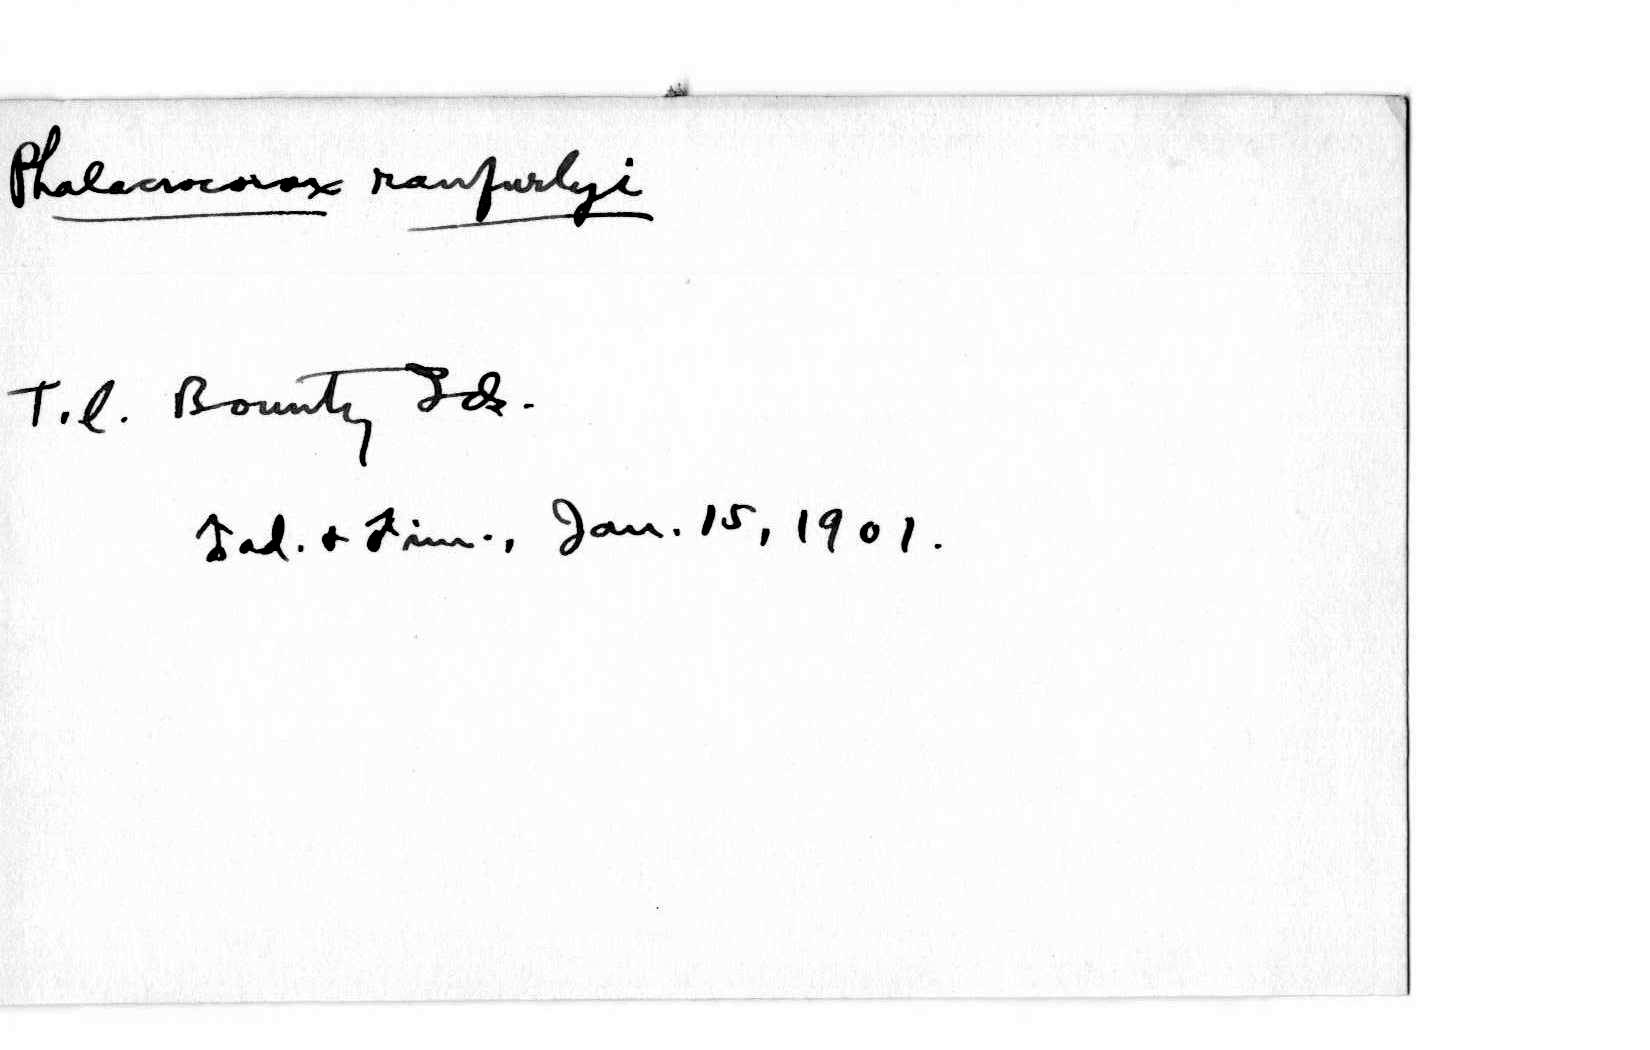 Phalacrocorax ranfurlyi
T.l. Bounty Ids.
♂ad. + ♂im., Jan. 15, 1901.